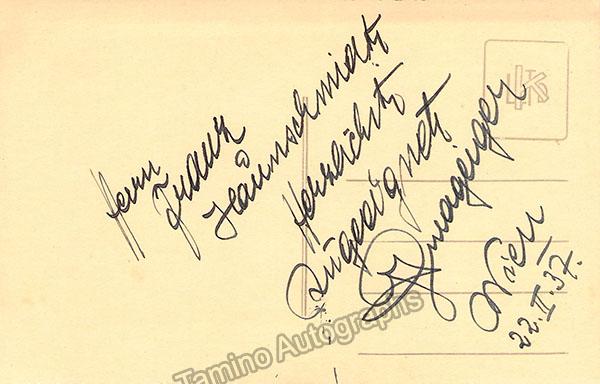 Herrn
Franz
Hammschmidt
Herzlichst
zugeeignet
Wien
22.II.37.
Tamino Autographs